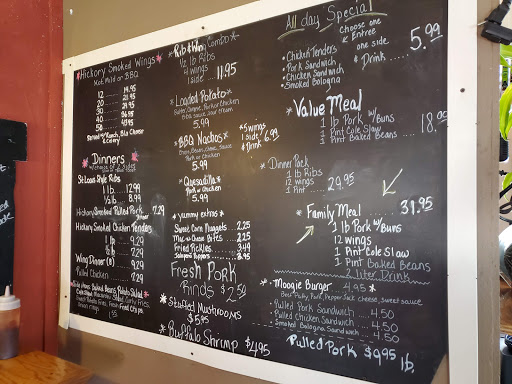 Hickory Smoked Wings
Hot Mild or BBQ
12 14.95
20 21.95
30 31.95
40
50 43.95
Served w/ Ranch, Blu Cheese
& Celery
Dinners
St Louis Style Ribs
1 lb 12.99
1/2 lb 8.99
Hickory Smoked Pulled Pork 7.29
Hickory Smoked Chicken Tenders
1 lb 9.29
1/2 lb 7.29
Wing Dinner (8) 9.29
Pulled Chicken 7.29
Baked Beans, Potato Salad
Rib & Wing Combo
1/2 lb Ribs
4 wings
1 side 11.95
Loaded Potato
Butter, Cheese, Pork or Chicken
BBQ sauce, sour cream
5.99
BBQ Nachos
Pork or Chicken
5.99
5 wings
1 side 6.99
& Drink
Quesadilla
Pork or Chicken
5.99
yummy extras
Sweet Corn Nuggets 2.25
Mac-n-Cheese Bites 2.25
Fried Pickles 3.49
Jalapeno Poppers 3.95
Fresh Pork
Rinds $2.50
Stuffed Mushrooms
$5.95
Buffalo Shrimp $4.95
All day Special
Choose one
Entree
one side
& Drink
5.99
Chicken Tenders
Pork Sandwich
Chicken Sandwich
Smoked Bologna
Value Meal
1 lb Pork w/ Buns
1 Pint Cole Slaw
1 Pint Baked Beans
Dinner Pack
1 lb Ribs
12 wings
1 Pint 29.95
Family Meal 31.95
1 lb Pork w/ Buns
12 wings
1 Pint Cole Slaw
1 Pint Baked Beans
2 liter Drink
Moogie Burger 4.95
Beef Patty, Pork, Pepper Jack cheese, sweet sauce
Pulled Pork Sandwich 4.50
Pulled Chicken Sandwich 4.50
Smoked Bologna Sandwich 4.50
Pulled Pork $9.95 lb.